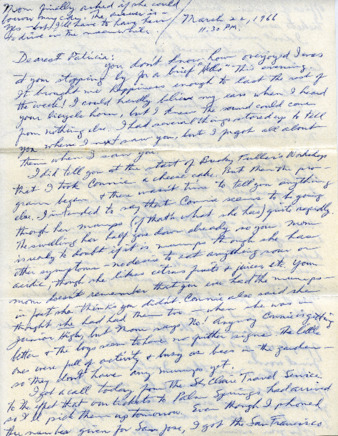 Mom finally asked if she could
borrow my car. The answer is -
Yes - but I'll have to hang here
& drive in the meanwhile.
March 22, 1966
11:30 P.M.
Dearest Patricia;
You don't know how overjoyed I was
at you stopping by for a brief "Hello" this evening.
It brought me happiness enough to last the rest of
the week! I could hardly believe my ears when I heard
your bicycle horn, but I knew the sound could come
from nothing else. I had several things stored up to tell
you when I next saw you, but I forgot all about
them when I saw you.
I did tell you at the start of Brady Fuller's Workshop
that I took Connie a cheese cake. But then the pro-
gram began & there wasn't time to tell you anything
else. I intended to say that Connie seems to be going
though her mumps (if that's what she has) quite rapidly.
The swelling has been going down already so you Mom
is ready to doubt if it is mumps though she has
other symptoms - no desire to eat anything sour or
acidic, though she likes citrus fruits & juices etc. Your
mom doesn't remember that you ever had the mumps -
in fact she thinks you didn't. Connie also said she
thought she had had them too - when she was in
Junior High, but Mom says No! Anyway Connie's getting
better & the boys seem to have no further signs. The little
ones were full of activity & busy as bees in the garden -
so they don't have any mumps yet.
I got a call today from the St. Claire Travel Service
to the effect that our tickets to Palm Springs had arrived
so I'll pick them up tomorrow. Even though I phoned
the number given for San Jose, I got the San Francisco